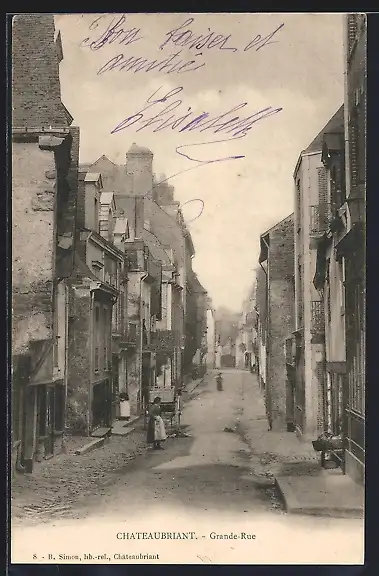 Bon baiser et
amitié
Elisabeth
CHATEAUBRIANT. - Grande-Rue
8 - B. Simon, lib.-rel., Châteaubriant